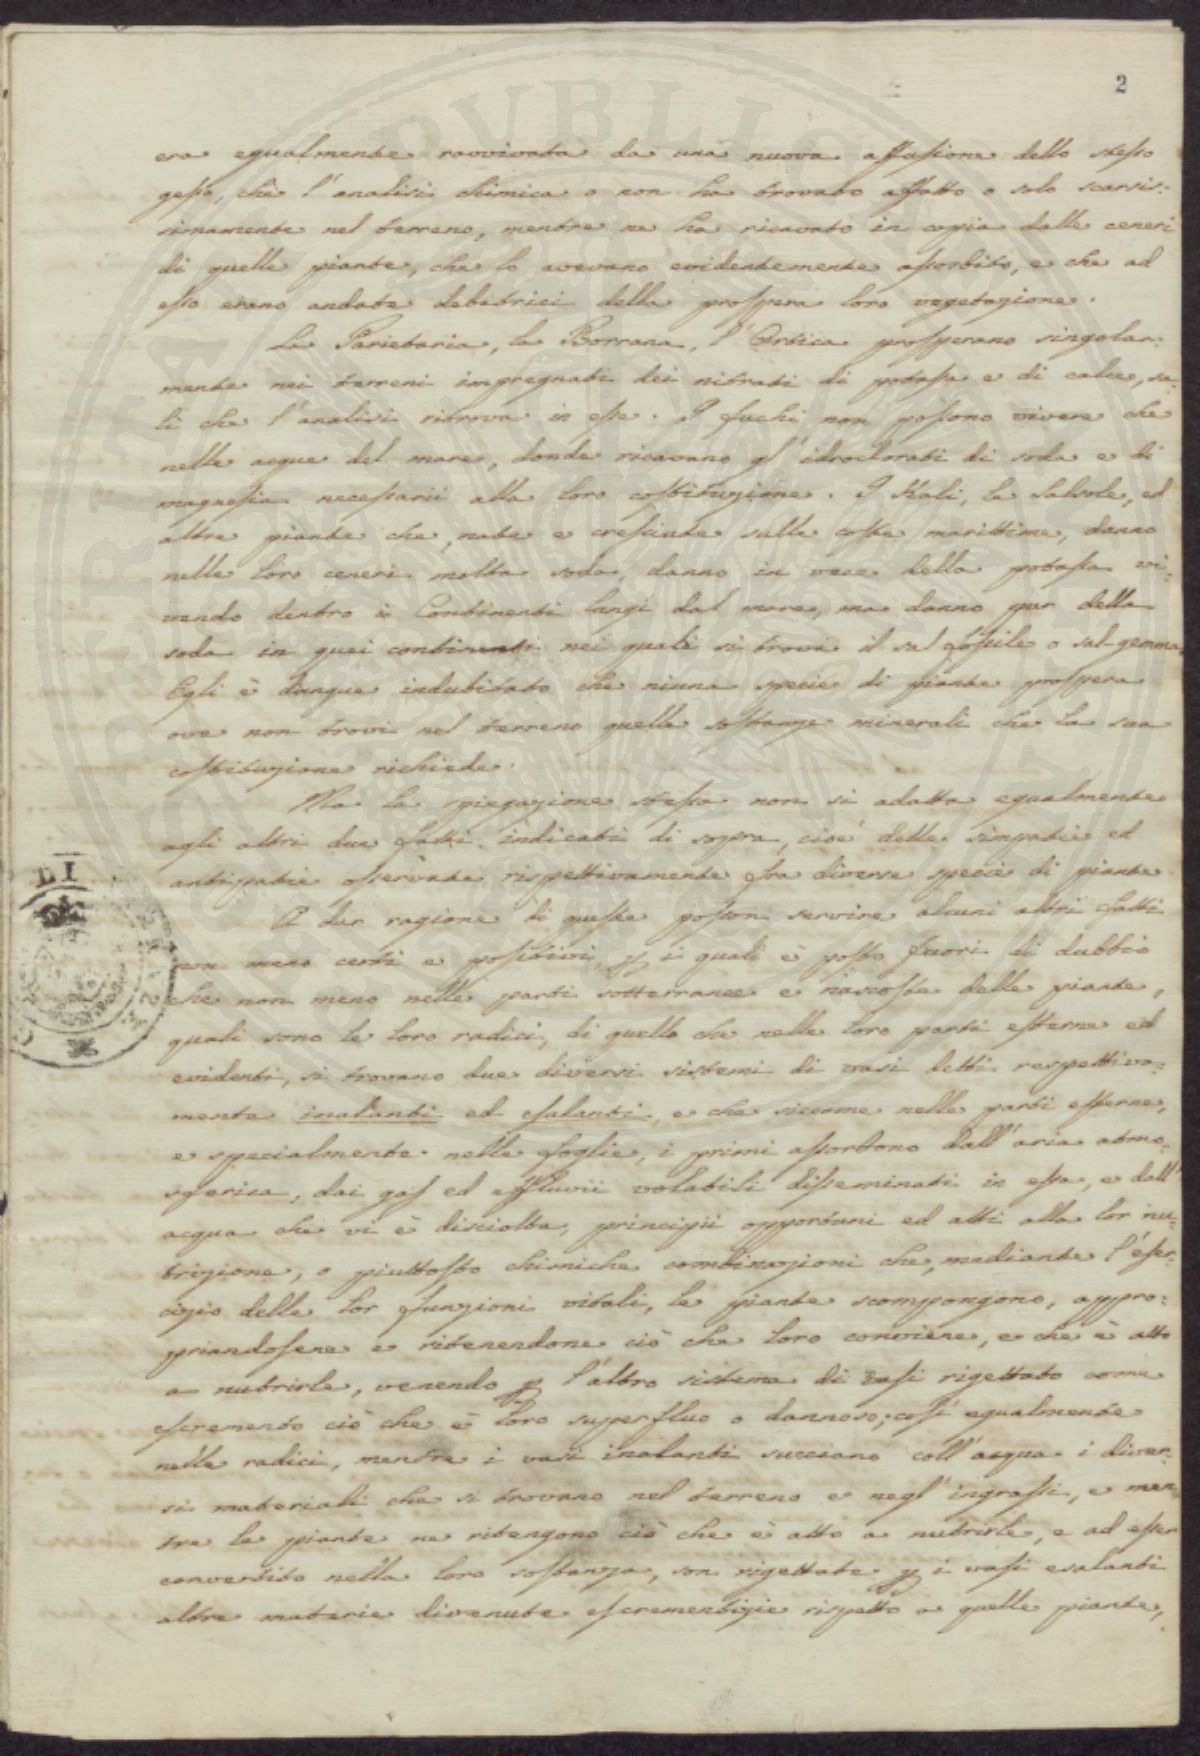 2
era egualmente ravvivata da una nuova affusione dello stesso
gesso, che l'analisi chimica o non ha trovato affatto o solo scarsis:
simamente nel terreno, mentre ne ha ricavato in copia dalle ceneri
di quelle piante, che lo avevano evidentemente assorbito, e che ad
esso erano andate debitrici della prospera loro vegetazione.
La Parietaria, la Borrana, l'Ortica prosperano singolar:
mente nei terreni impregnati dei nitrati di potassa e di calce, sa:
li che l'analisi ritrova in esse. I fuchi non possono vivere che
nelle acque del mare, donde ricavano gl'idroclorati di soda e di
magnesia necessarii alla loro costituzione. I Kali, la Salsole, ed
altre piante che, nate e cresciute sulle coste marittime, danno
nelle loro ceneri molta soda, danno in vece della potassa vi:
vendo dentro i Continenti lungi dal mare, ma danno pur della
soda in quei continenti nei quali si trova il sal fossile o sal-gemma.
Egli è dunque indubitato che niuna specie di piante prospera
ove non trovi nel terreno quelle sostanze minerali che la sua
costituzione richiede.
Ma la spiegazione stessa non si adatta egualmente
agli altri due fatti indicati di sopra, cioè delle simpatie ed
antipatie osservate rispettivamente fra diverse specie di piante.
A dar ragione di queste posson servire alcuni altri fatti
non meno certi e positivi, p i quali è posto fuori di dubbio
che non meno nelle parti sotterranee e nascoste delle piante,
quali sono le loro radici, di quello che nelle loro parti esterne ed
evidenti, si trovano due diversi sistemi di vasi detti respettiva:
mente inalanti ed esalanti, e che siccome nelle parti esterne,
e specialmente nelle foglie, i primi assorbono dall'aria atmo:
sferica, dai gas ed effluvii volatili disseminati in essa, e dall'
acqua che vi è disciolta, principii opportuni ed atti alla lor nu:
trizione, o piuttosto chimiche combinazioni che, mediante l'eser:
cizio delle lor funzioni vitali, le piante scompongono, appro:
priandosene e ritenendone ciò che loro conviene, e che è atto
a nutrirle, venendo p l'altro sistema di vasi rigettato come
escremento ciò che è loro superfluo o dannoso; così egualmente
nelle radici, mentre i vasi inalanti succiano coll'acqua i diver:
si materiali che si trovano nel terreno e negl'ingrassi, e men:
tre le piante ne ritengono ciò che è atto a nutrirle, e ad esser
convertito nella loro sostanza, son rigettate p i vasi esalanti
altre materie divenute escrementizie rispetto a quelle piante,